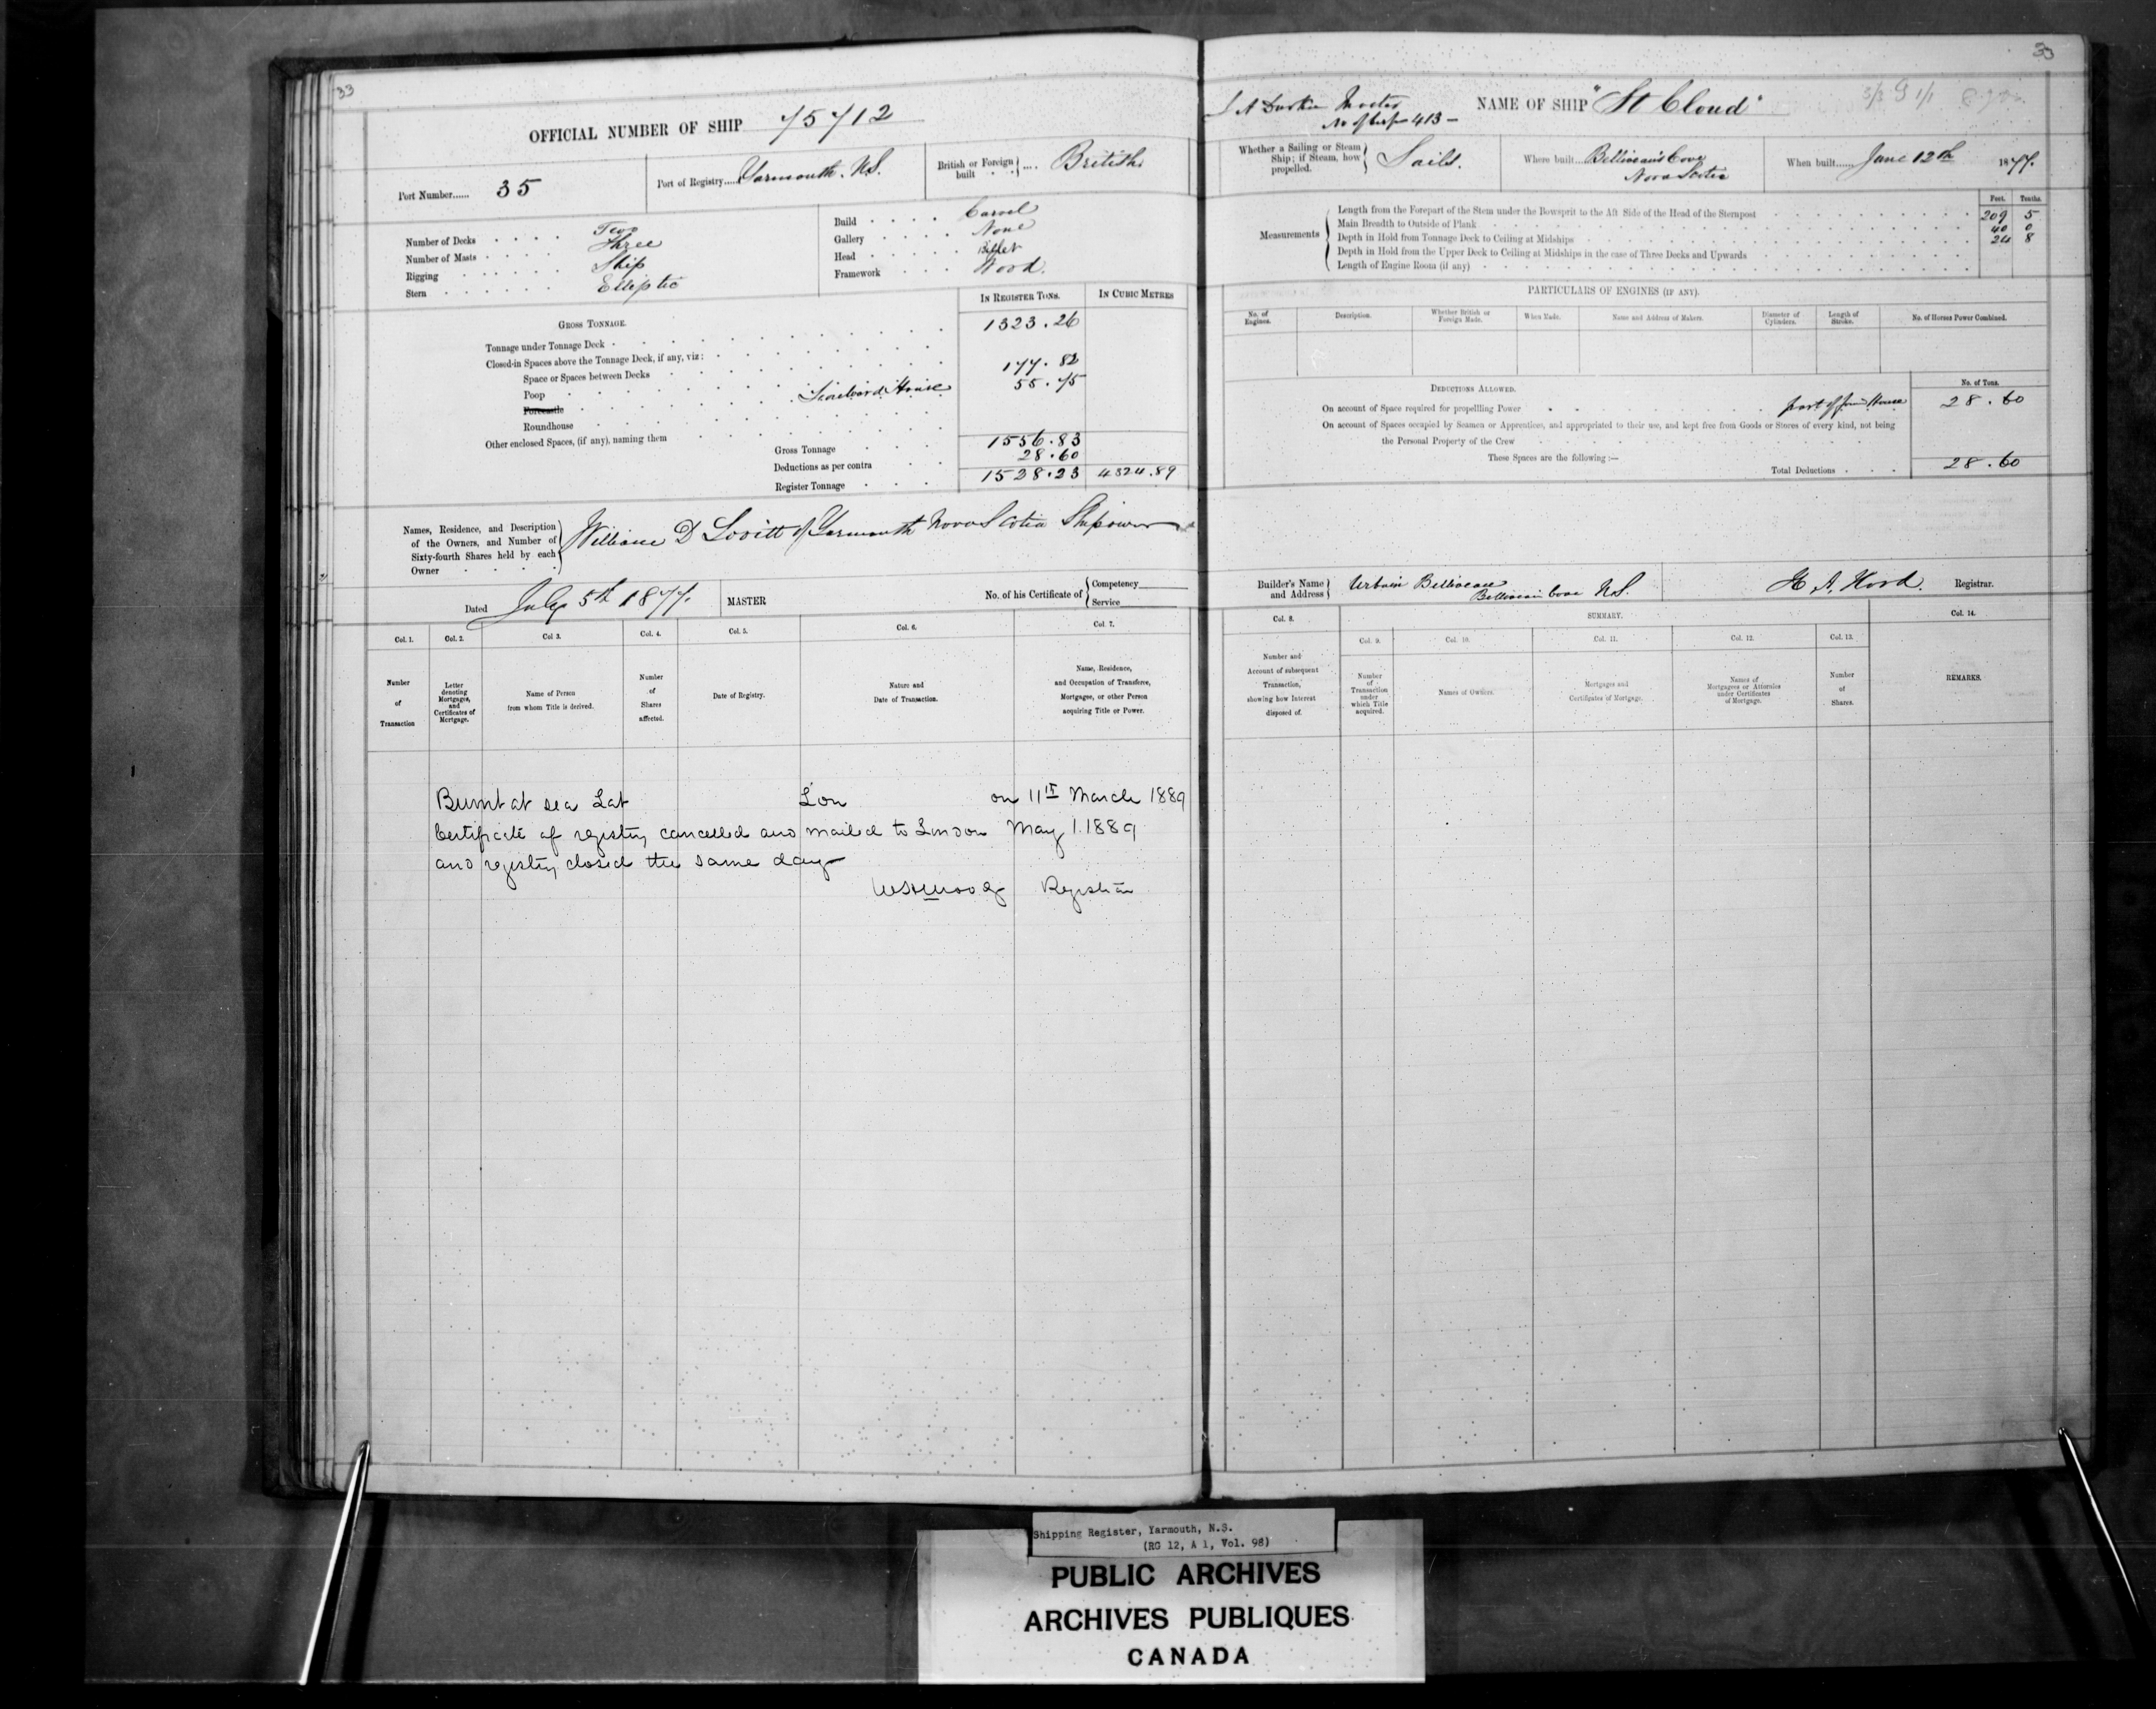 33
OFFICIAL NUMBER OF SHIP 75712
Port Number...... 35
Port of Registry..... Yarmouth. N.S.
British or Foreign built .... British
Number of Decks . . . . Two
Number of Masts . . . . Three
Rigging . . . . . . Ship
Stern . . . . . . Elliptic
Build . . . . Carvel
Gallery . . . . None
Head . . . . Billet
Framework . . . . Wood.
IN REGISTER TONS. IN CUBIC METRES
GROSS TONNAGE.
Tonnage under Tonnage Deck 1323.26
Closed-in Spaces above the Tonnage Deck, if any, viz:
Space or Spaces between Decks
Poop 177.82
Forecastle House 55.75
Roundhouse
Other enclosed Spaces, (if any), naming them
Gross Tonnage 1556.83
Deductions as per contra 28.60
Register Tonnage 1528.23 4324.89
Names, Residence, and Description of the Owners, and Number of Sixty-fourth Shares held by each Owner
William D Lovitt of Yarmouth Nova Scotia Shipowner
Dated July 5th 1877.
MASTER
No. of his Certificate of { Competency
Service
Col. 1. Col. 2. Col 3. Col. 4. Col. 5. Col. 6. Col. 7.
Number of Transaction
Letter denoting Mortgages, and Certificates of Mortgage.
Name of Person from whom Title is derived.
Number of Shares affected.
Date of Registry.
Nature and Date of Transaction.
Name, Residence, and Occupation of Transferee, Mortgagee, or other Person acquiring Title or Power.
Burnt at sea Lat Lon on 11th March 1889
Certificate of registry cancelled and mailed to London May 1.1889
and registry closed the same day
Registrar
33
Master
413
NAME OF SHIP "St Cloud"
Whether a Sailing or Steam Ship; if Steam, how propelled. } Sails.
Where built... Belliveau's Cove
Nova Scotia
When built...... June 12th 1877.
Feet. Tenths.
Measurements
Length from the Forepart of the Stem under the Bowsprit to the Aft Side of the Head of the Sternpost 209 5
Main Breadth to Outside of Plank 40 0
Depth in Hold from Tonnage Deck to Ceiling at Midships 24 8
Depth in Hold from the Upper Deck to Ceiling at Midships in the case of Three Decks and Upwards
Length of Engine Room (if any)
PARTICULARS OF ENGINES (IF ANY).
No. of Engines. Description. Whether British or Foreign Made. When Made. Name and Address of Makers. Diameter of Cylinders. Length of Stroke. No. of Horses Power Combined.
DEDUCTIONS ALLOWED. No. of Tons.
On account of Space required for propelling Power part of House 28.60
On account of Spaces occupied by Seamen or Apprentices, and appropriated to their use, and kept free from Goods or Stores of every kind, not being
the Personal Property of the Crew
These Spaces are the following:—
Total Deductions . . . 28.60
Builder's Name and Address } Urbain Belliveau
Belliveau Cove N.S.
Registrar.
SUMMARY.
Col. 8. Col. 9. Col. 10. Col. 11. Col. 12. Col. 13. Col. 14.
Number and Account of subsequent Transaction, showing how Interest disposed of.
Number of Transaction under which Title acquired.
Names of Owners.
Mortgages and Certificates of Mortgage.
Names of Mortgagees or Attornies under Certificates of Mortgage.
Number of Shares.
REMARKS.
Shipping Register, Yarmouth, N.S.
(RG 12, A 1, Vol. 98)
PUBLIC ARCHIVES
ARCHIVES PUBLIQUES
CANADA